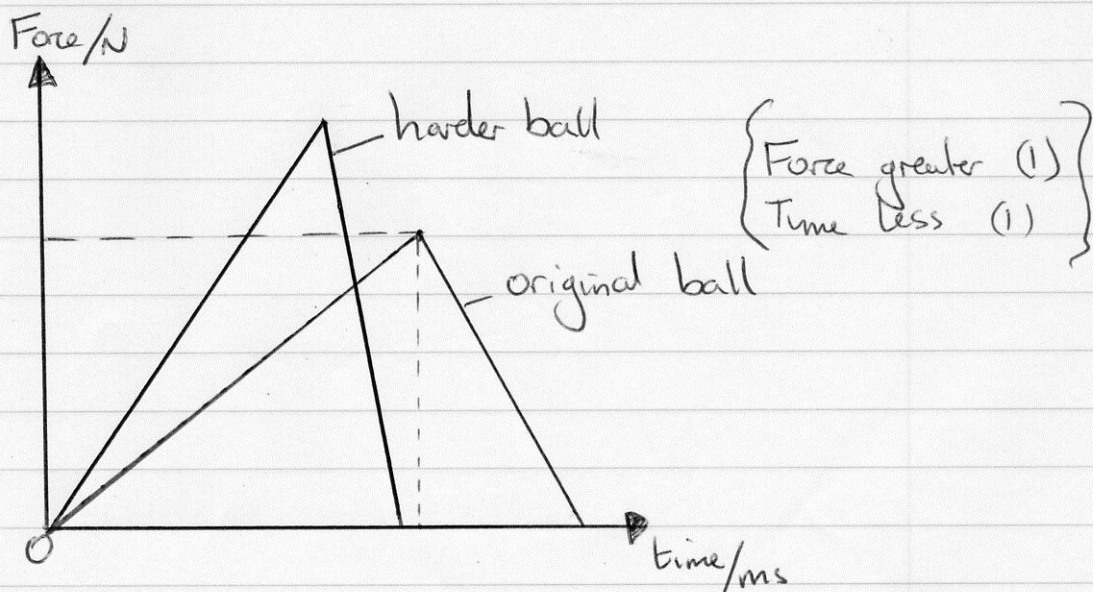 Force/N
harder ball
Force greater (1)
Time less (1)
original ball
O
time/ms